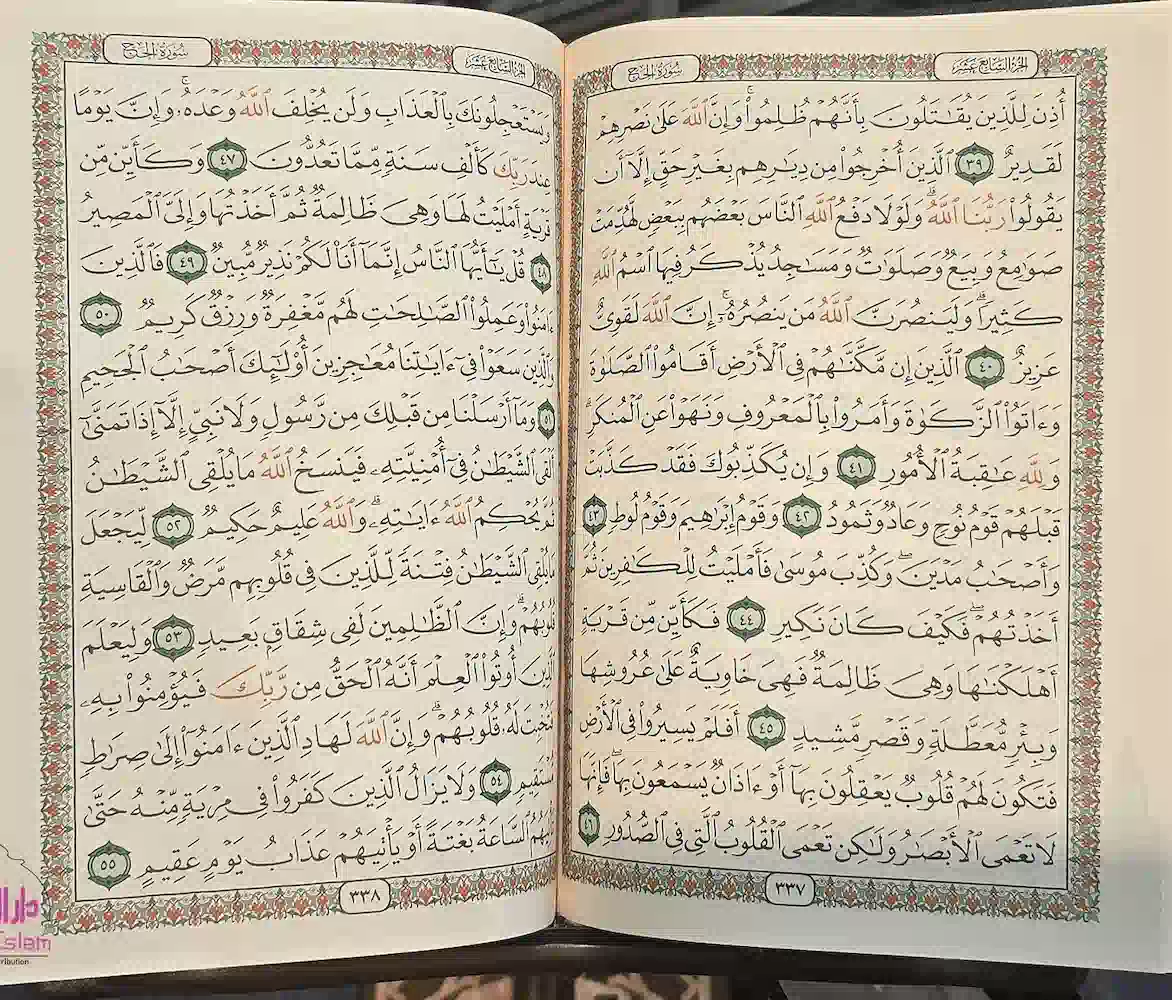 الجزء السابع عشر
سورة الحج
أُذِنَ لِلَّذِينَ يُقَٰتَلُونَ بِأَنَّهُمْ ظُلِمُوا۟ وَإِنَّ ٱللَّهَ عَلَىٰ نَصْرِهِمْ
لَقَدِيرٌ ٣٩ ٱلَّذِينَ أُخْرِجُوا۟ مِن دِيَٰرِهِم بِغَيْرِ حَقٍّ إِلَّآ أَن
يَقُولُوا۟ رَبُّنَا ٱللَّهُ ۗ وَلَوْلَا دَفْعُ ٱللَّهِ ٱلنَّاسَ بَعْضَهُم بِبَعْضٍ لَّهُدِّمَتْ
صَوَٰمِعُ وَبِيَعٌ وَصَلَوَٰتٌ وَمَسَٰجِدُ يُذْكَرُ فِيهَا ٱسْمُ ٱللَّهِ
كَثِيرًا ۗ وَلَيَنصُرَنَّ ٱللَّهُ مَن يَنصُرُهُۥٓ ۗ إِنَّ ٱللَّهَ لَقَوِىٌّ
عَزِيزٌ ٤٠ ٱلَّذِينَ إِن مَّكَّنَّٰهُمْ فِى ٱلْأَرْضِ أَقَامُوا۟ ٱلصَّلَوٰةَ
وَءَاتَوُا۟ ٱلزَّكَوٰةَ وَأَمَرُوا۟ بِٱلْمَعْرُوفِ وَنَهَوْا۟ عَنِ ٱلْمُنكَرِ ۗ
وَلِلَّهِ عَٰقِبَةُ ٱلْأُمُورِ ٤١ وَإِن يُكَذِّبُوكَ فَقَدْ كَذَّبَتْ
قَبْلَهُمْ قَوْمُ نُوحٍ وَعَادٌ وَثَمُودُ ٤٢ وَقَوْمُ إِبْرَٰهِيمَ وَقَوْمُ لُوطٍ ٤٣
وَأَصْحَٰبُ مَدْيَنَ ۖ وَكُذِّبَ مُوسَىٰ فَأَمْلَيْتُ لِلْكَٰفِرِينَ ثُمَّ
أَخَذْتُهُمْ ۖ فَكَيْفَ كَانَ نَكِيرِ ٤٤ فَكَأَيِّن مِّن قَرْيَةٍ
أَهْلَكْنَٰهَا وَهِىَ ظَالِمَةٌ فَهِىَ خَاوِيَةٌ عَلَىٰ عُرُوشِهَا
وَبِئْرٍ مُّعَطَّلَةٍ وَقَصْرٍ مَّشِيدٍ ٤٥ أَفَلَمْ يَسِيرُوا۟ فِى ٱلْأَرْضِ
فَتَكُونَ لَهُمْ قُلُوبٌ يَعْقِلُونَ بِهَآ أَوْ ءَاذَانٌ يَسْمَعُونَ بِهَا ۖ فَإِنَّهَا
لَا تَعْمَى ٱلْأَبْصَٰرُ وَلَٰكِن تَعْمَى ٱلْقُلُوبُ ٱلَّتِى فِى ٱلصُّدُورِ ٤٦
٣٣٧
الجزء السابع عشر
سورة الحج
وَيَسْتَعْجِلُونَكَ بِٱلْعَذَابِ وَلَن يُخْلِفَ ٱللَّهُ وَعْدَهُۥ ۚ وَإِنَّ يَوْمًا
عِندَ رَبِّكَ كَأَلْفِ سَنَةٍ مِّمَّا تَعُدُّونَ ٤٧ وَكَأَيِّن مِّن
قَرْيَةٍ أَمْلَيْتُ لَهَا وَهِىَ ظَالِمَةٌ ثُمَّ أَخَذْتُهَا وَإِلَىَّ ٱلْمَصِيرُ
٤٨ قُلْ يَٰٓأَيُّهَا ٱلنَّاسُ إِنَّمَآ أَنَا۠ لَكُمْ نَذِيرٌ مُّبِينٌ ٤٩ فَٱلَّذِينَ
ءَامَنُوا۟ وَعَمِلُوا۟ ٱلصَّٰلِحَٰتِ لَهُم مَّغْفِرَةٌ وَرِزْقٌ كَرِيمٌ ٥٠
وَٱلَّذِينَ سَعَوْا۟ فِىٓ ءَايَٰتِنَا مُعَٰجِزِينَ أُو۟لَٰٓئِكَ أَصْحَٰبُ ٱلْجَحِيمِ
٥١ وَمَآ أَرْسَلْنَا مِن قَبْلِكَ مِن رَّسُولٍ وَلَا نَبِىٍّ إِلَّآ إِذَا تَمَنَّىٰٓ
أَلْقَى ٱلشَّيْطَٰنُ فِىٓ أُمْنِيَّتِهِۦ فَيَنسَخُ ٱللَّهُ مَا يُلْقِى ٱلشَّيْطَٰنُ
ثُمَّ يُحْكِمُ ٱللَّهُ ءَايَٰتِهِۦ ۗ وَٱللَّهُ عَلِيمٌ حَكِيمٌ ٥٢ لِّيَجْعَلَ
مَا يُلْقِى ٱلشَّيْطَٰنُ فِتْنَةً لِّلَّذِينَ فِى قُلُوبِهِم مَّرَضٌ وَٱلْقَاسِيَةِ
قُلُوبُهُمْ ۗ وَإِنَّ ٱلظَّٰلِمِينَ لَفِى شِقَاقٍۭ بَعِيدٍ ٥٣ وَلِيَعْلَمَ
ٱلَّذِينَ أُوتُوا۟ ٱلْعِلْمَ أَنَّهُ ٱلْحَقُّ مِن رَّبِّكَ فَيُؤْمِنُوا۟ بِهِۦ
فَتُخْبِتَ لَهُۥ قُلُوبُهُمْ ۗ وَإِنَّ ٱللَّهَ لَهَادِ ٱلَّذِينَ ءَامَنُوٓا۟ إِلَىٰ صِرَٰطٍ
مُّسْتَقِيمٍ ٥٤ وَلَا يَزَالُ ٱلَّذِينَ كَفَرُوا۟ فِى مِرْيَةٍ مِّنْهُ حَتَّىٰ
تَأْتِيَهُمُ ٱلسَّاعَةُ بَغْتَةً أَوْ يَأْتِيَهُمْ عَذَابُ يَوْمٍ عَقِيمٍ ٥٥
٣٣٨